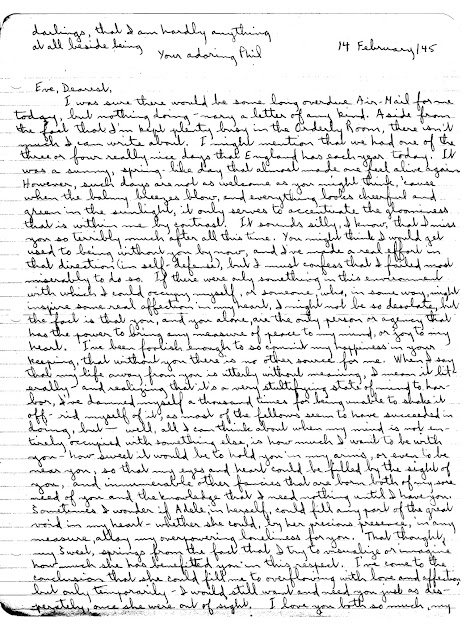 darlings, that I am hardly anything
at all beside being
Your adoring Phil
14 February/45
Eve, Dearest,
I was sure there would be some long overdue Air-Mail for me
today, but nothing doing - nary a letter of any kind. Aside from
the fact that I'm kept plenty busy in the Orderly Room, there isn't
much I can write about. I might mention that we had one of the
three or four really nice days that England has each year, today. It
was a sunny, spring-like day that almost made one feel alive again.
However, such days are not as welcome as you might think, 'cause
when the balmy breezes blow, and everything looks cheerful and
green in the sunlight, it only serves to accentuate the gloominess
that is within me by contrast. It sounds silly, I know, that I miss
you so terribly much after all this time. You might think I would get
used to being without you by now, and I've made a real effort in
that direction (in self-defense), but I must confess that I failed most
miserably to do so. If there were only something in this environment
with which I could occupy myself, or someone who, in some way, might
inspire some real affection in my heart, I might not be so desolate, but
the fact is that you, and you alone, are the only person or agency that
has the power to bring any measure of peace to my mind, or joy to my
heart. I've been foolish enough to so commit my happiness in your
keeping, that without you there is no other source for me. When I say
that my life away from you is utterly without meaning, I mean it lit-
erally - and realizing that it's a very stultifying state of mind to har-
bor, I've damned myself a thousand times for being unable to shake it
off - rid myself of it, as most of the fellows seem to have succeeded in
doing, but - well, all I can think about when my mind is not en-
tirely occupied with something else, is how much I want to be with
you - how sweet it would be to hold you in my arms, or even to be
near you, so that my eyes and heart could be filled by the sight of
you, and innumerable other fancies that are born both of my sore
need of you and the knowledge that I need nothing until I have you.
Sometimes I wonder if Adele, in herself, could fill any part of the great
void in my heart - whether she could, by her precious presence, in any
measure, allay my overpowering loneliness for you. That thought,
my Sweet, springs from the fact that I try to visualize or imagine
how much she has benefitted you in this respect. I've come to the
conclusion that she could fill me to overflowing with love and affection,
but only temporarily - I would still want and need you just as des-
perately, once she were out of sight. I love you both so much, my